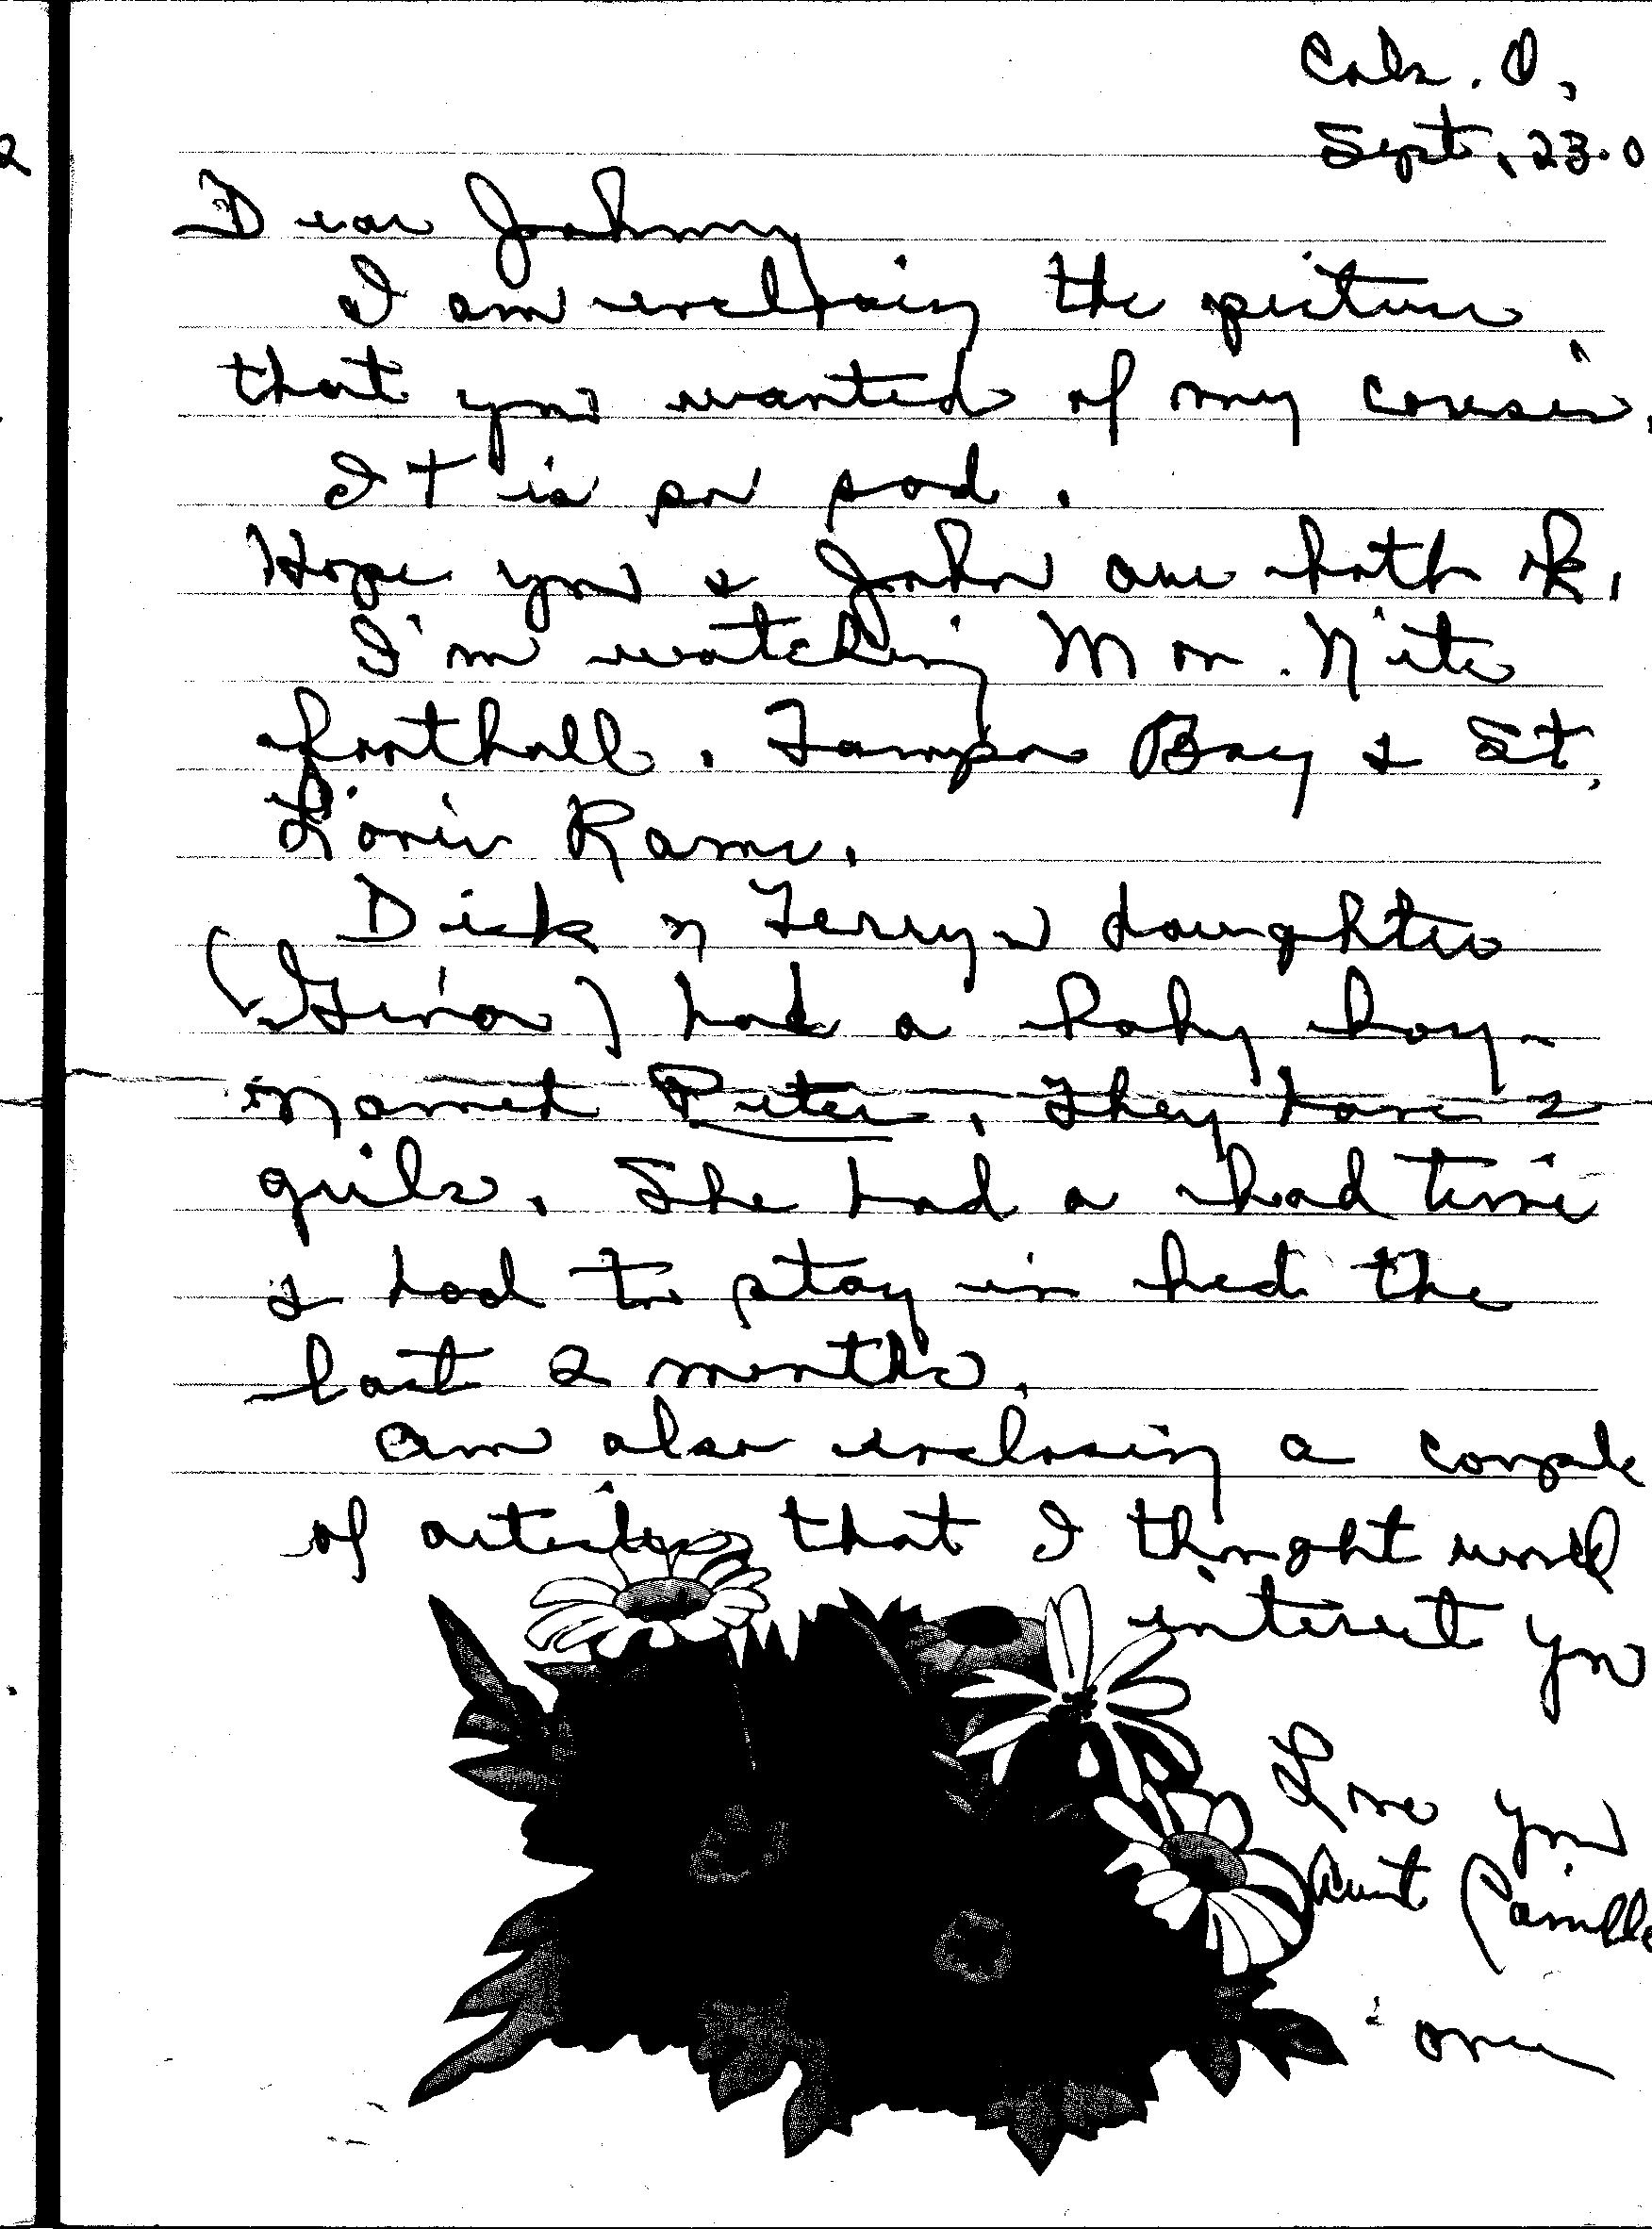 Cols. O,
Sept. 23. 0
2
Dear Johnny
I am enclosing the picture
that you wanted of my cousin.
It is so sad.
Hope you & John are both ok.
I'm watching Mon. Nite
football. Tampa Bay & St.
Louis Rams.
Dick n Terrys daughter
(Gina) had a baby boy -
named Peter. They have 2
girls. She had a bad time
& had to stay in bed the
last 2 months.
Am also enclosing a couple
of articles that I thought would
interest you
Love you
Aunt Camille
over